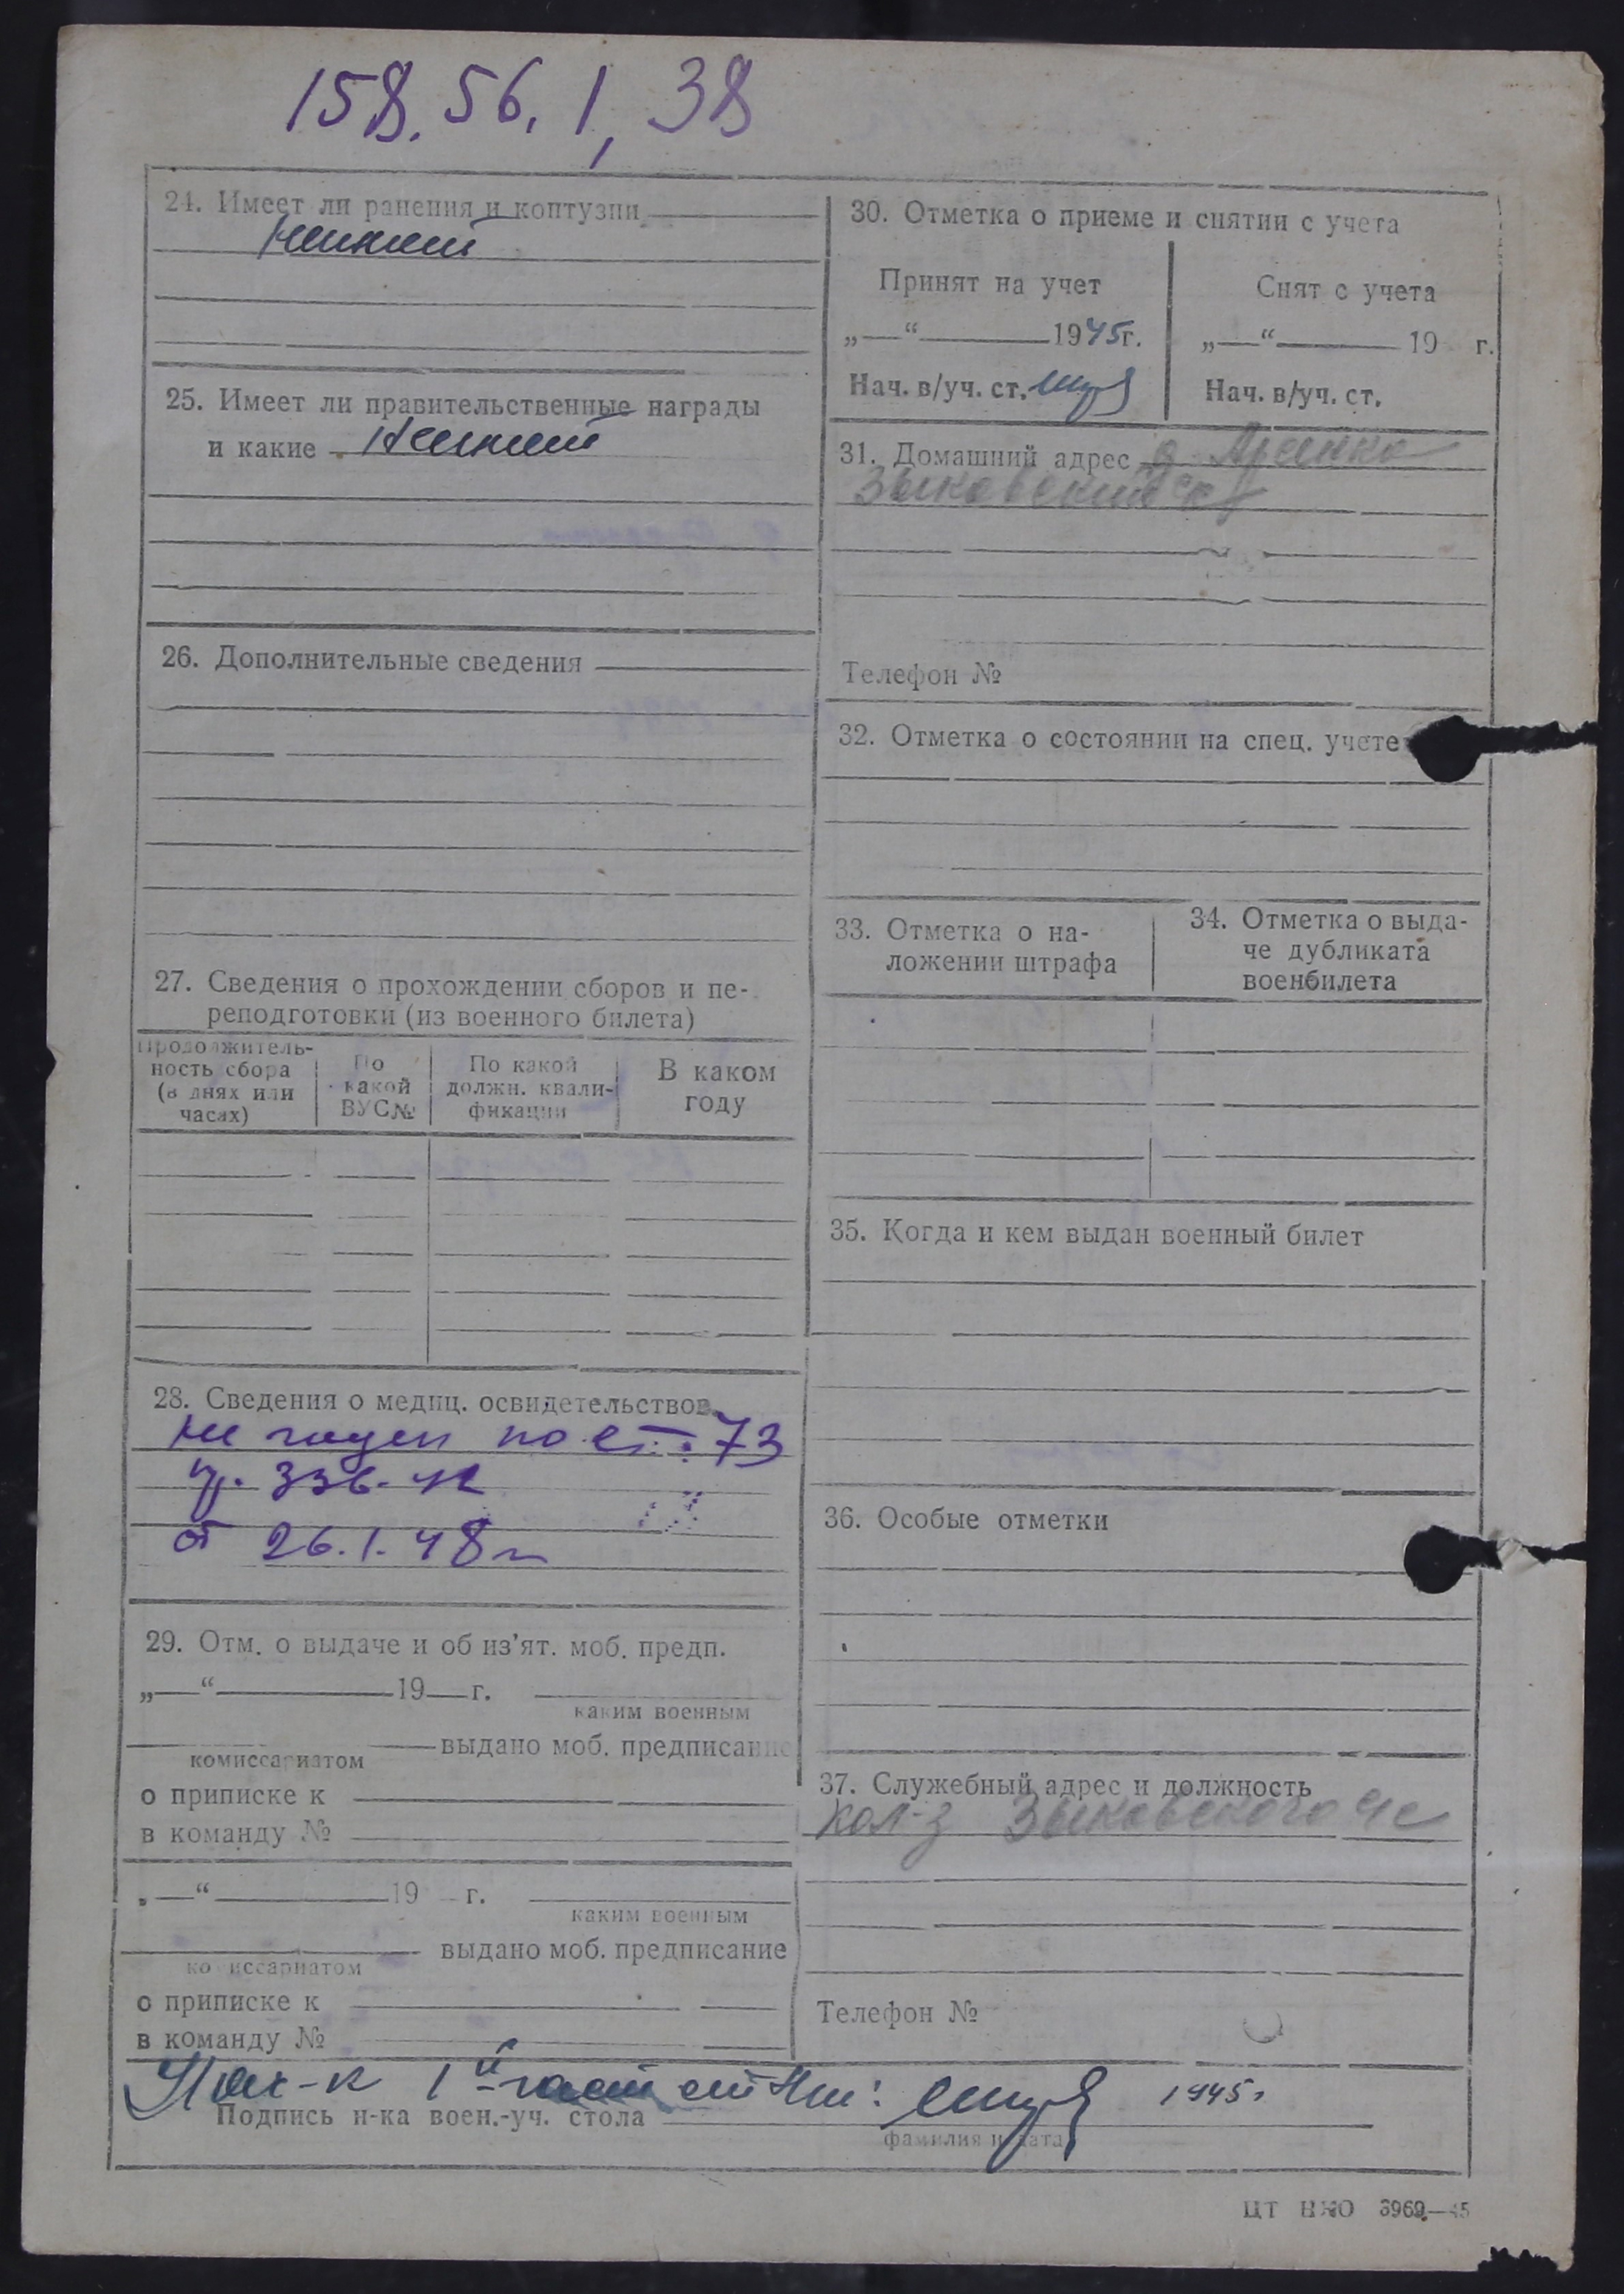 158. 56. 1, 38
24. Имеет ли ранения и контузии
25. Имеет ли правительственные награды
и какие
26. Дополнительные сведения
27. Сведения о прохождении сборов и пе-
реподготовки (из военного билета)
Продолжитель-
ность сбора
(в днях или
часах)
По
какой
ВУС№
По какой
должн. квали-
фикации
В каком
году
28. Сведения о медиц. освидетельствов.
не годен по ст. 73
пр. 336-42
от 26.1.48 г
29. Отм. о выдаче и об из'ят. моб. предп.
„—“ 19 г.
каким военным
выдано моб. предписание
комиссариатом
о приписке к
в команду №
„—“ 19 г.
каким военным
выдано моб. предписание
комиссариатом
о приписке к
в команду №
30. Отметка о приеме и снятии с учета
Принят на учет
„—“ 1945г.
Нач. в/уч. ст.
Снят с учета
„—“ 19 г.
Нач. в/уч. ст.
31. Домашний адрес д.
Зыковский с/с
Телефон №
32. Отметка о состоянии на спец. учете
33. Отметка о на-
ложении штрафа
34. Отметка о выда-
че дубликата
военбилета
35. Когда и кем выдан военный билет
36. Особые отметки
37. Служебный адрес и должность
кол-з Зыковского с/с
Телефон №
Нач-к 1й части 1945г
Подпись н-ка воен.-уч. стола
фамилия и дата
ЦТ НКО 3969—45